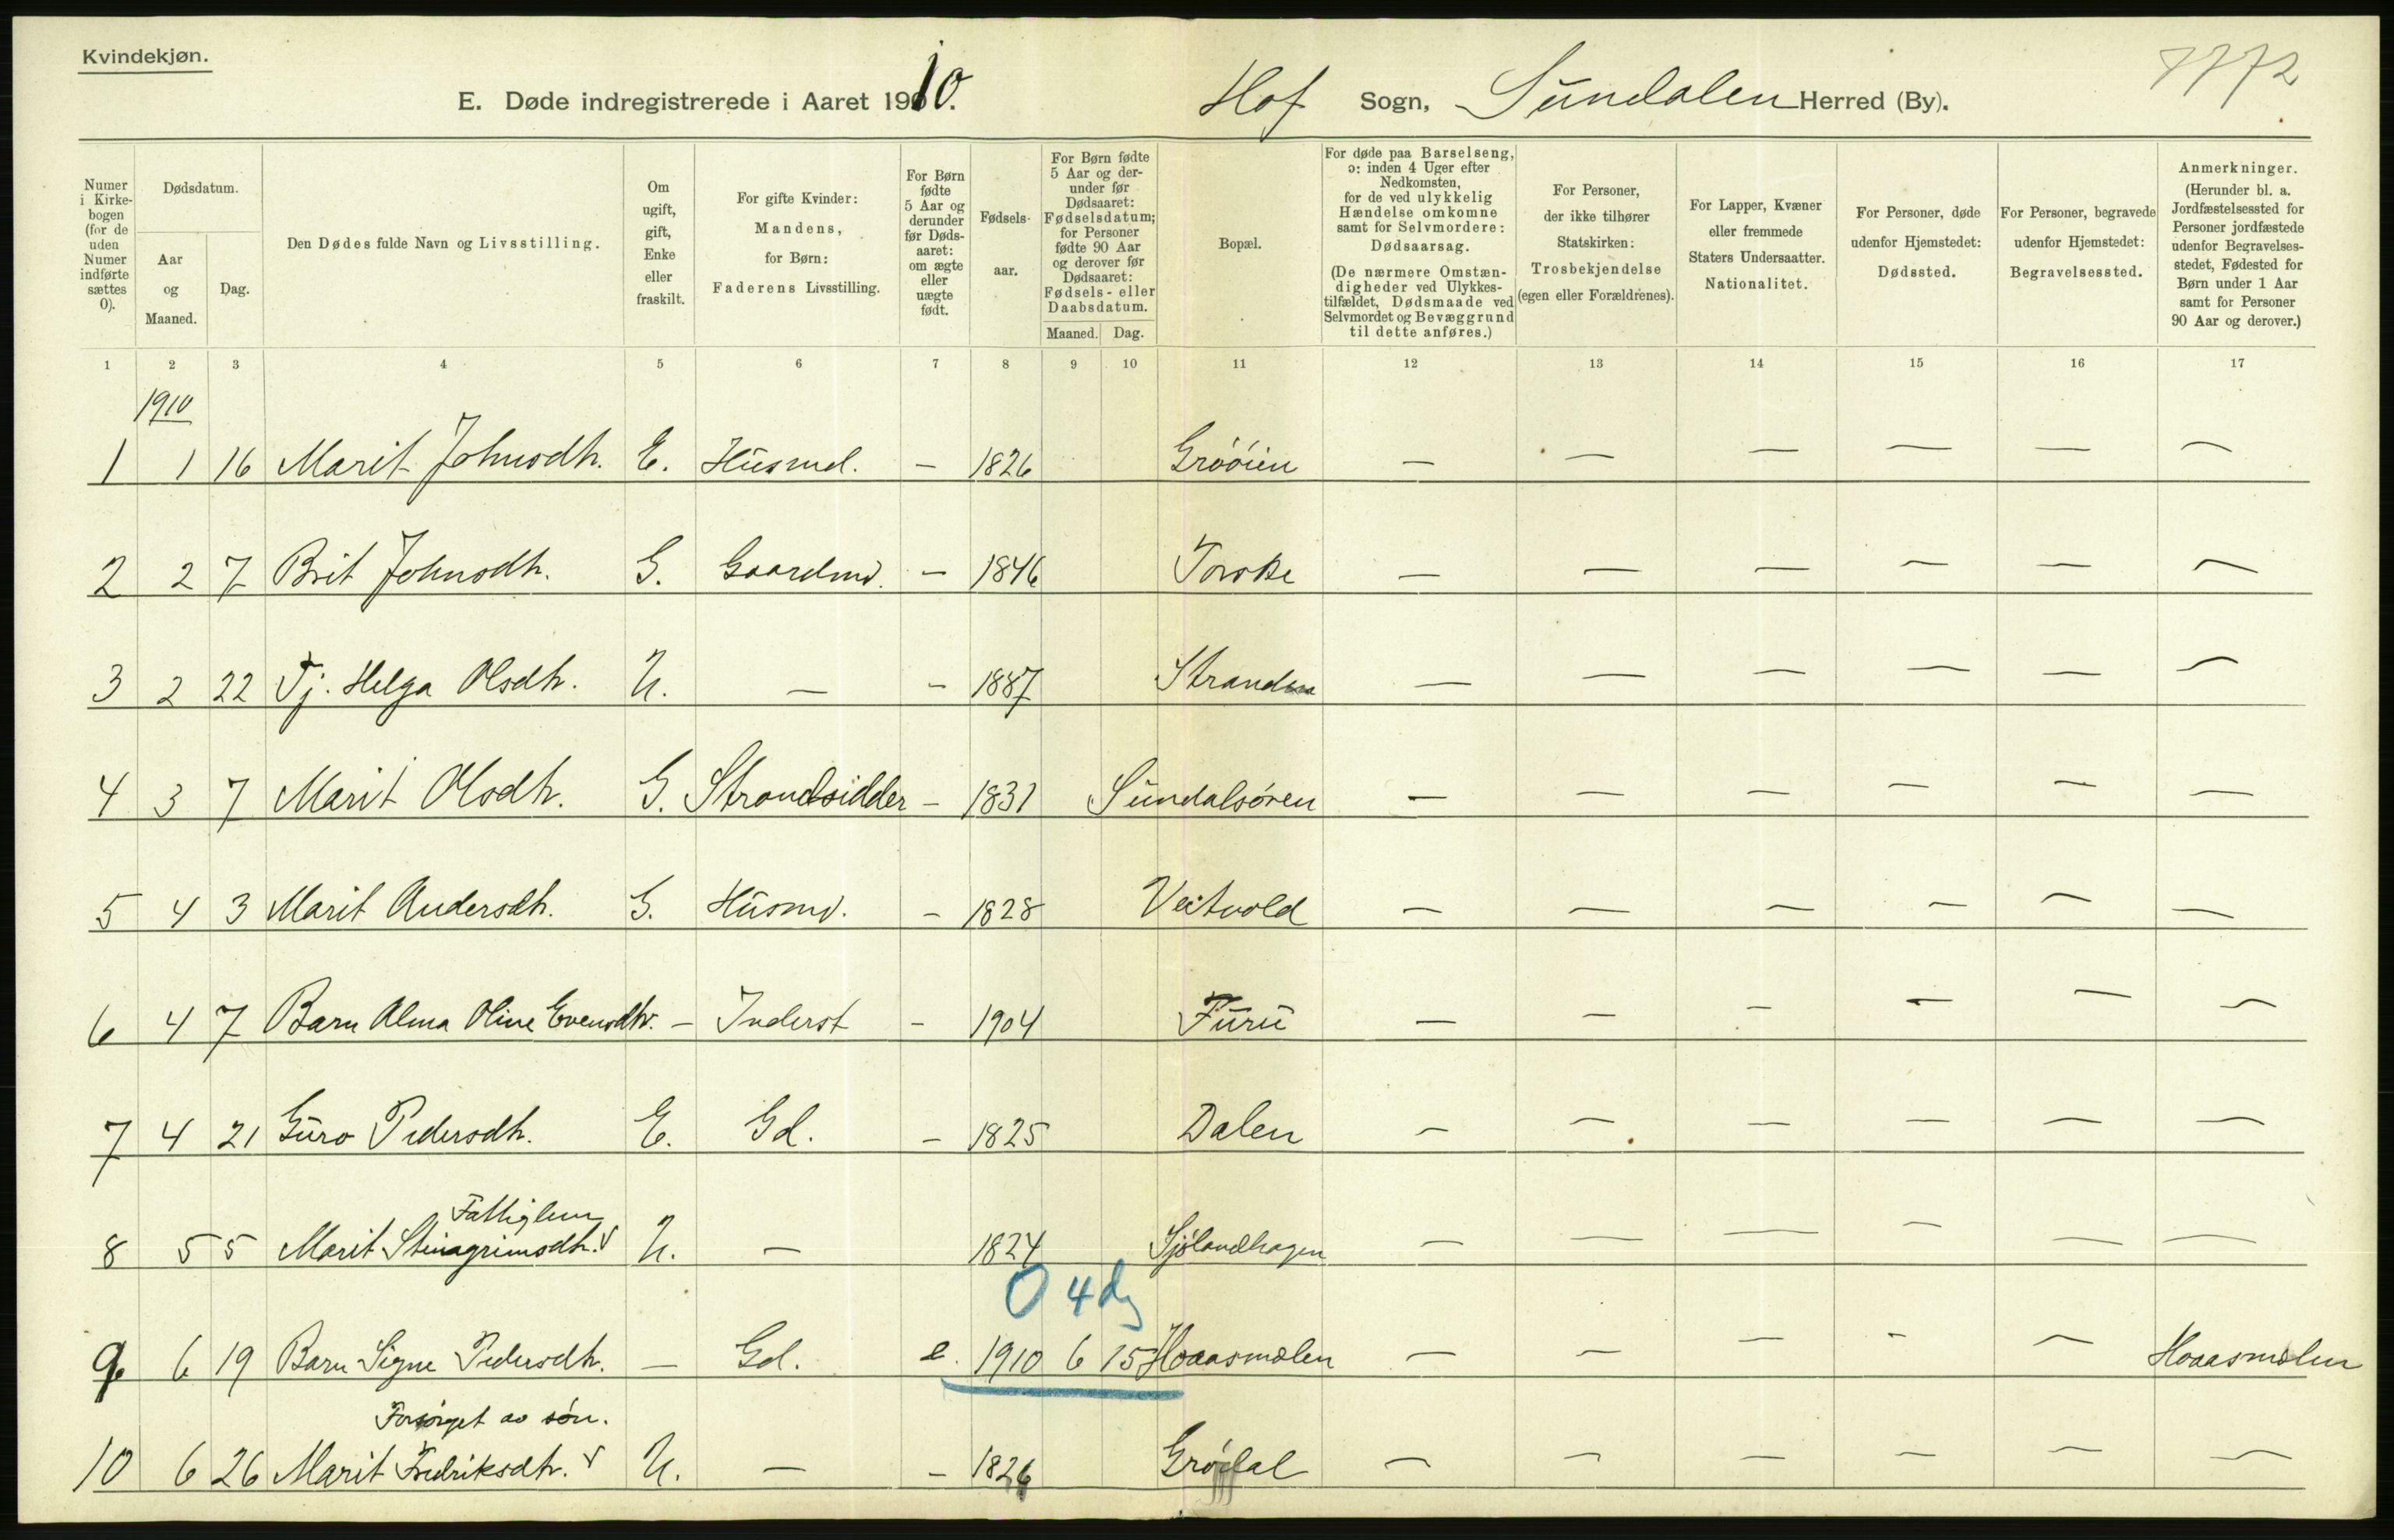 Kvindekjøn.
7772
E. Døde indregistrerede i Aaret 1910.
Hof Sogn, Sundalen Herred (By).
Numer i Kirke- bogen (for de uden Numer indførte sættes 0).
Dødsdatum.
Aar og Maaned.
Dag.
Den Dødes fulde Navn og Livsstilling.
Om ugift, gift, Enke eller fraskilt.
For gifte Kvinder: Mandens, for Børn: Faderens Livsstilling.
For Børn fødte 5 Aar og derunder før Døds- aaret: om ægte eller uægte født.
Fødsels- aar.
For Børn fødte 5 Aar og der- under før Dødsaaret: Fødselsdatum; for Personer fødte 90 Aar og derover før Dødsaaret: Fødsels- eller Daabsdatum.
Maaned. Dag.
Bopæl.
For døde paa Barselseng, ɔ: inden 4 Uger efter Nedkomsten, for de ved ulykkelig Hændelse omkomne samt for Selvmordere: Dødsaarsag. (De nærmere Omstæn- digheder ved Ulykkes- tilfældet, Dødsmaade ved Selvmordet og Bevæggrund til dette anføres.)
For Personer, der ikke tilhører Statskirken: Trosbekjendelse (egen eller Forældrenes).
For Lapper, Kvæner eller fremmede Staters Undersaatter. Nationalitet.
For Personer, døde udenfor Hjemstedet: Dødssted.
For Personer, begravede udenfor Hjemstedet: Begravelsessted.
Anmerkninger. (Herunder bl. a. Jordfæstelsessted for Personer jordfæstede udenfor Begravelses- stedet, Fødested for Børn under 1 Aar samt for Personer 90 Aar og derover.)
1 2 3 4 5 6 7 8 9 10 11 12 13 14 15 16 17
1910
1 1 16 Marit Johnsdtr. E. Husmd. — 1826 Gröóien — — — — — —
2 2 7 Brit Johnsdtr. G. Gaardmd. — 1846 Torske — — — — — —
3 2 22 Tj. Helga Olsdtr. U. — — 1887 Strand — — — — — —
4 3 7 Marit Olsdtr. G. Strandsidder — 1831 Sundalsören — — — — — —
5 4 3 Marit Andersdtr. G. Husmd. — 1828 Veitvold — — — — — —
6 4 7 Barn Alma Oline Evensdtr. — Inderst — 1904 Furu — — — — — —
7 4 21 Guro Pedersdtr. E. Gd. — 1825 Dalen — — — — — —
Fattiglem
8 5 5 Marit Steinagrimsdtr. U. — 1824 Sjölandhagen — — — — — —
0 4 dg
9 6 19 Barn Signe Pedersdtr. — Gd. e. 1910 6 15 Hoaasmælen — — — — — Hoaasmælen
Forsörget av sön.
10 6 26 Marit Fredriksdtr. U. — — 1826 Grödal — — — — — —